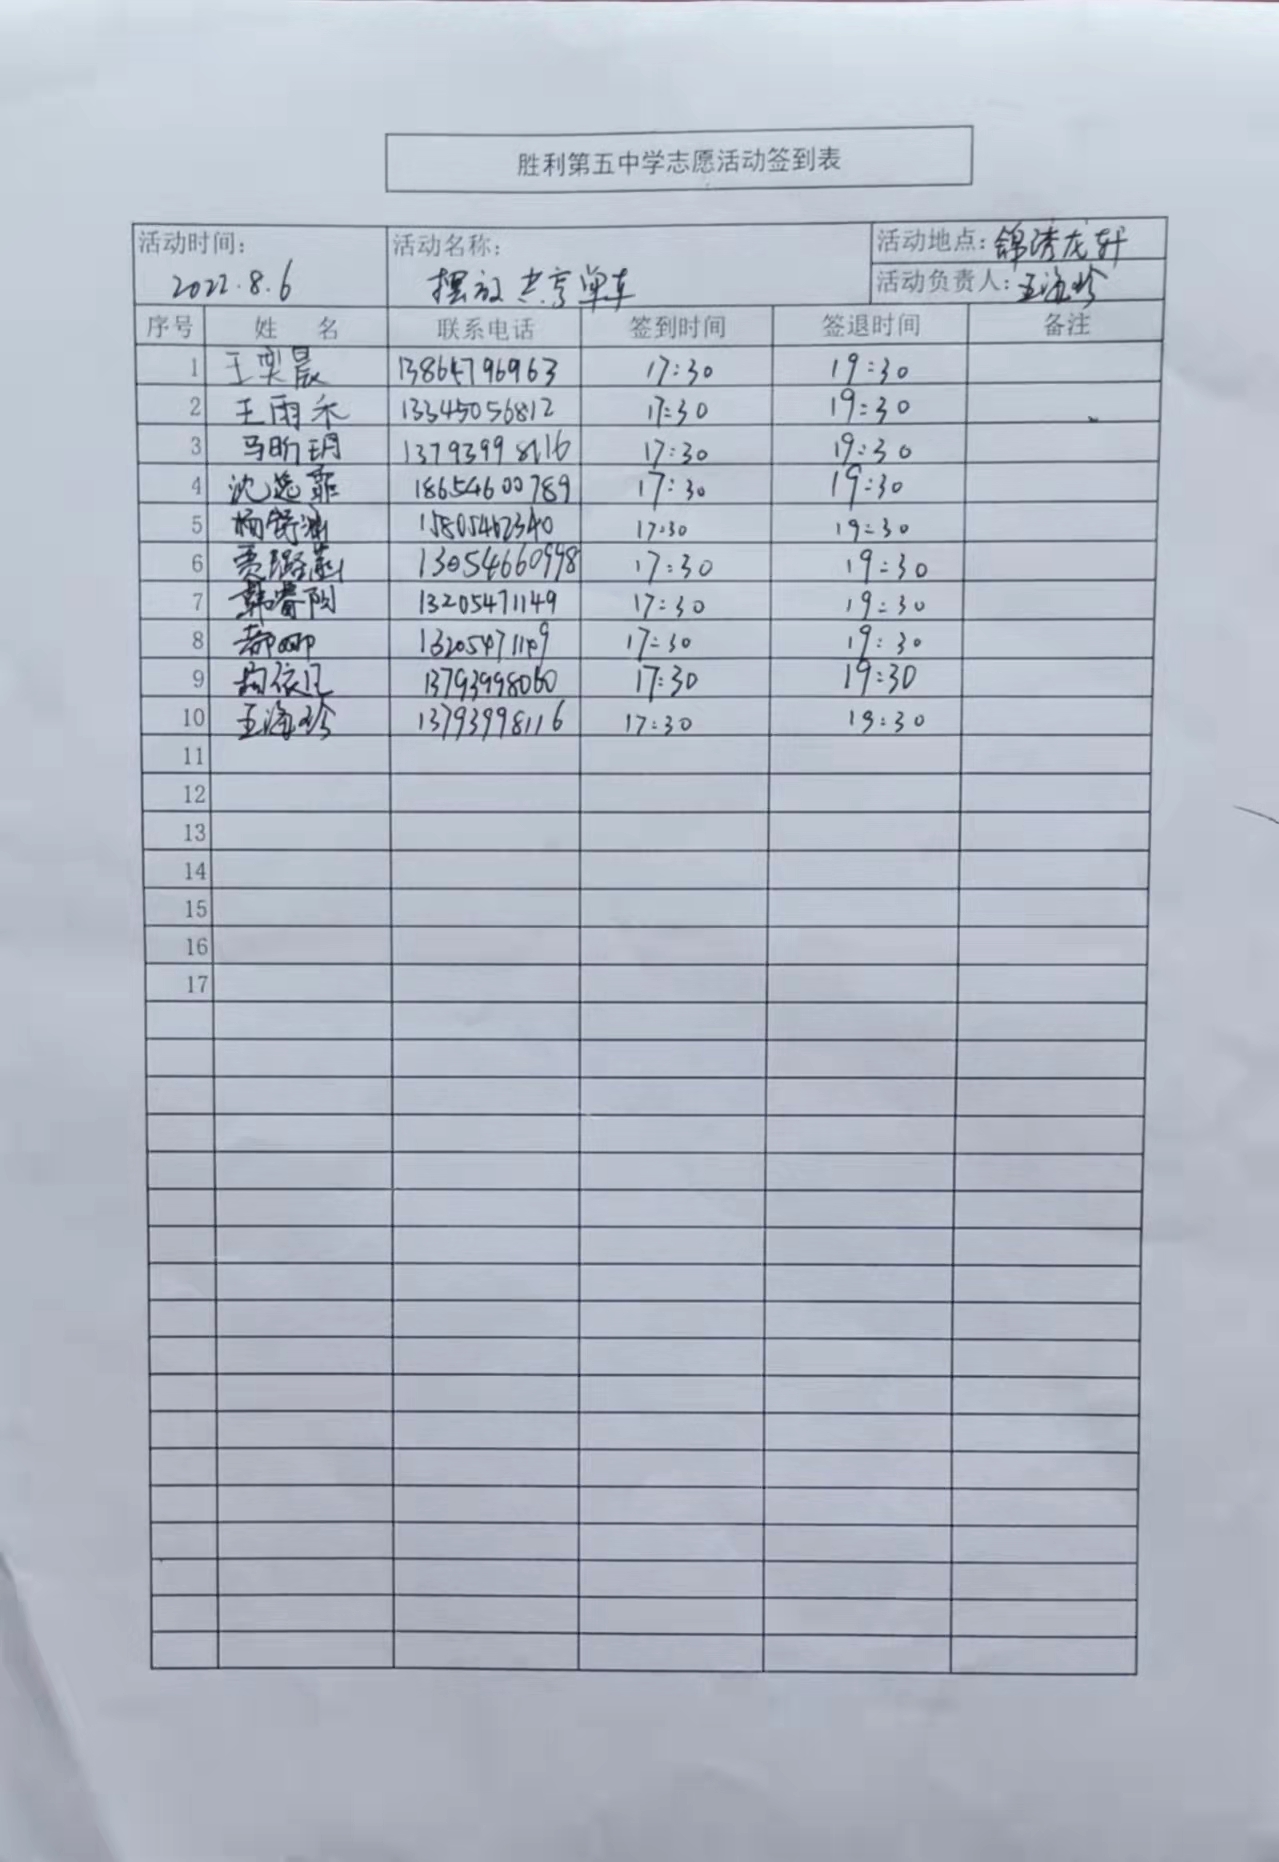 胜利第五中学志愿活动签到表
活动时间： 活动名称： 活动地点：锦绣龙轩
2022.8.6 摆放共享单车 活动负责人：王海珍
序号 姓 名 联系电话 签到时间 签退时间 备注
1 王奕晨 13864796963 17:30 19:30
2 王雨禾 13345056812 17:30 19:30
3 马昕玥 13793998116 17:30 19:30
4 沈逸菲 18654600789 17:30 19:30
5 杨舒涵 15805462340 17:30 19:30
6 贾璐菡 13054660998 17:30 19:30
7 韩睿阳 13205471149 17:30 19:30
8 郝娜 13205471149 17:30 19:30
9 依凡 13793998060 17:30 19:30
10 王海珍 13793998116 17:30 19:30
11
12
13
14
15
16
17